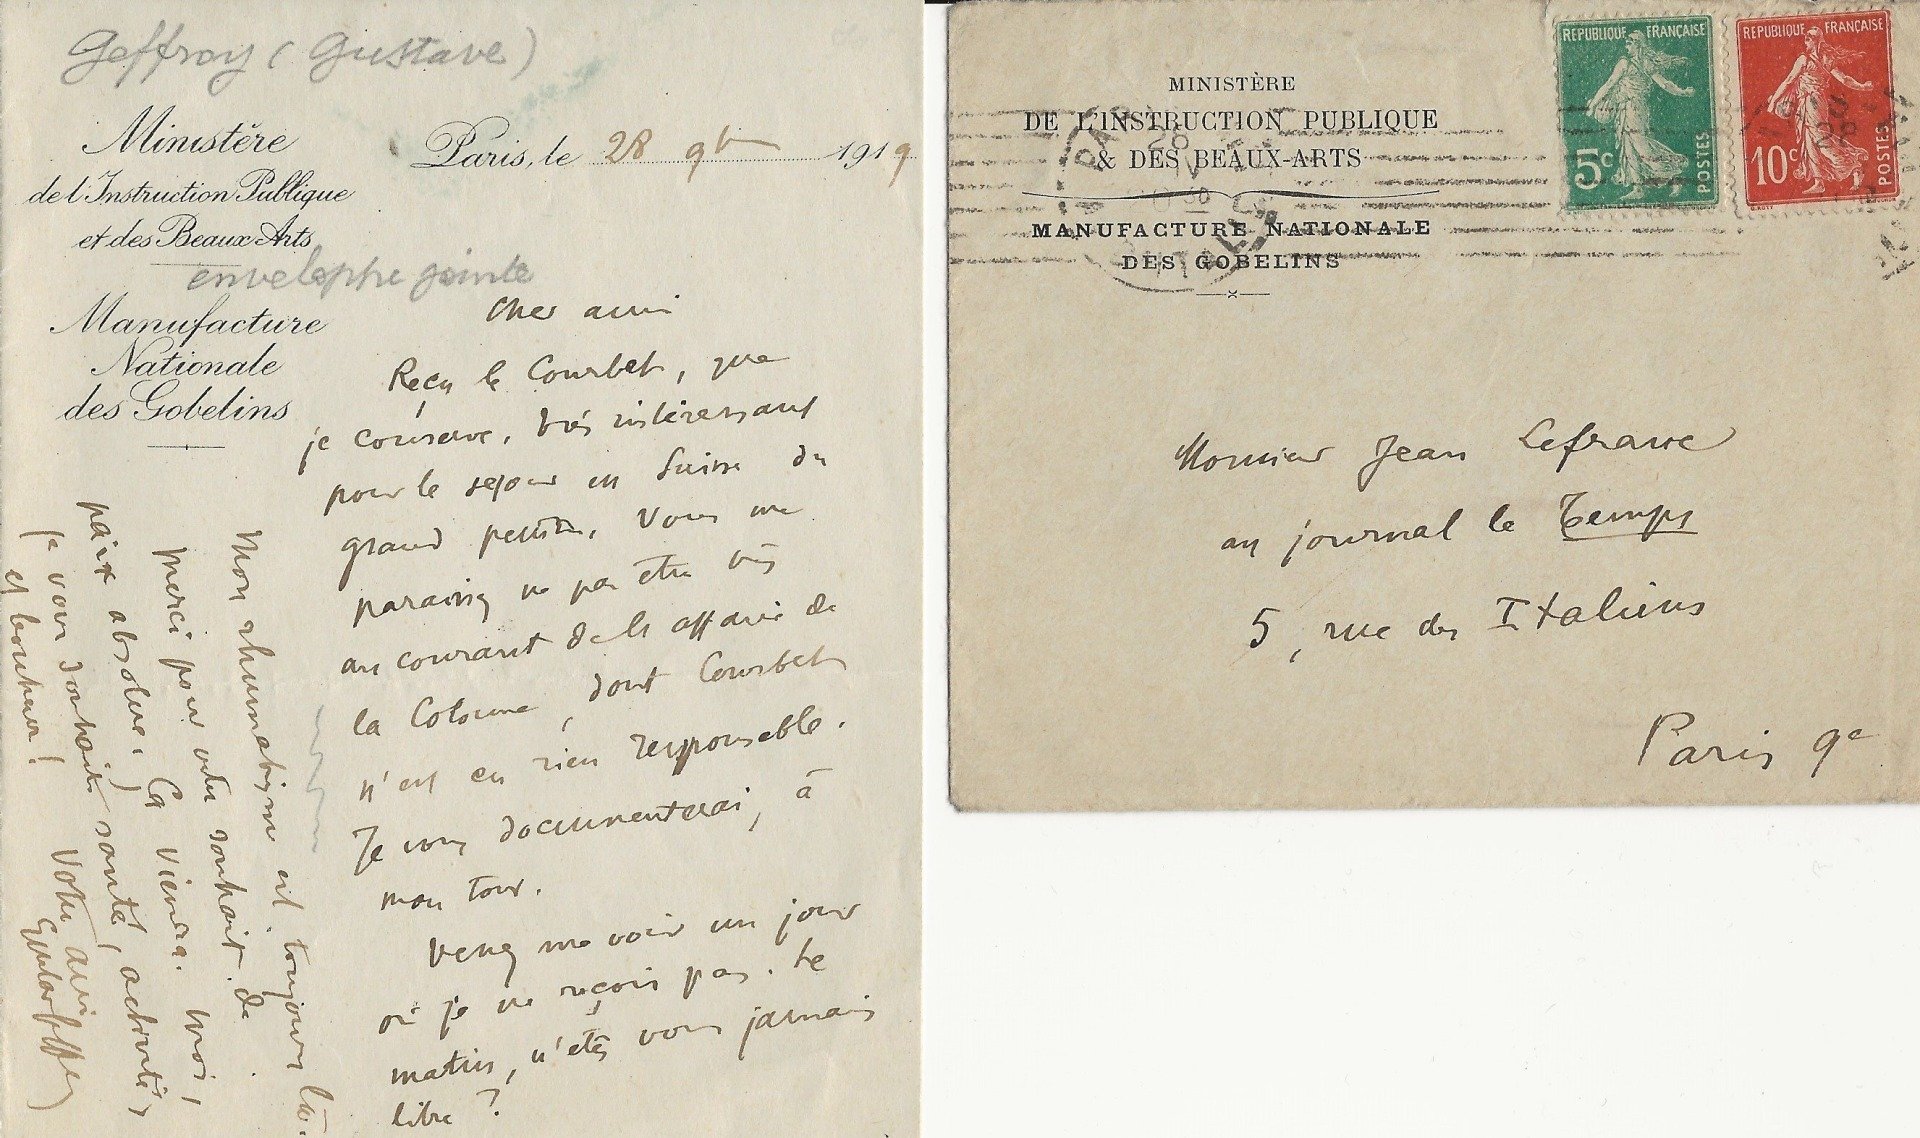 Geffroy (Gustave)
Ministère
de l'Instruction Publique
et des Beaux-Arts
enveloppe jointe
Manufacture
Nationale
des Gobelins
Paris, le 28 9bre 1919
Cher ami
Reçu le Courbet, que
je conserve, très intéressant
pour le séjour en Suisse du
grand peintre. Vous me
paraissez ne pas être très
au courant de l'affaire de
la Colonne, dont Courbet
n'est en rien responsable.
Je vous documenterai, à
mon tour.
Venez me voir un jour
où je ne reçois pas. Le
matin, n'êtes vous jamais
libre ?
Mon rhumatisme est toujours là.
Merci pour votre souhait de
paix absolue. Ça viendra. Moi,
je vous souhaite santé, activité,
et bonheur !
Votre ami
Gustave Geffroy
MINISTÈRE
DE L'INSTRUCTION PUBLIQUE
& DES BEAUX-ARTS
MANUFACTURE NATIONALE
DES GOBELINS
REPUBLIQUE FRANÇAISE
5c
POSTES
REPUBLIQUE FRANÇAISE
10c
POSTES
PARIS
28
Monsieur Jean Lefranc
au journal le Temps
5, rue des Italiens
Paris 9e